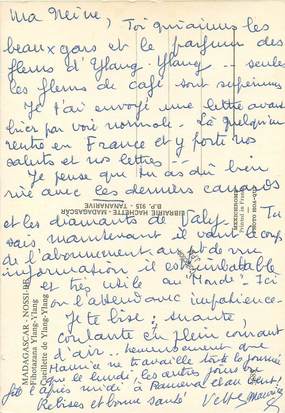 Ma Reine, Toi qui aimes les
beaux gars et le parfum des
fleurs d'Ylang-Ylang -- seules
les fleurs de café sont supérieures
Je t'ai envoyé une lettre avant
hier par voie normale. Là quelqu'un
rentre en France et y porte nos
saluts et nos lettres --
Je pense que tu as dû bien
rire avec les derniers canards
et les diamants de Valy. Tu
sais maintenant il vaut le coup
de l'abonnement. de vue
information, il est imbattable
et très utile au "Monde". Ici
on l'attend avec impatience.
Je te bise, suante,
coulante en plein courant
d'air .. heureusement que
ne travaille toute la journée
que le lundi, les autres jours on
file l'après midi à Ramena et au
Rebises et bonne santé
LIBRAIRIE HACHETTE - MADAGASCAR
B.P. 915 - TANANARIVE
MADAGASCAR - NOSSI-BE
Fihotazana Ylang-Ylang
Cueillette de Ylang-Ylang
Printed in France
PHOTO HOA-QUI